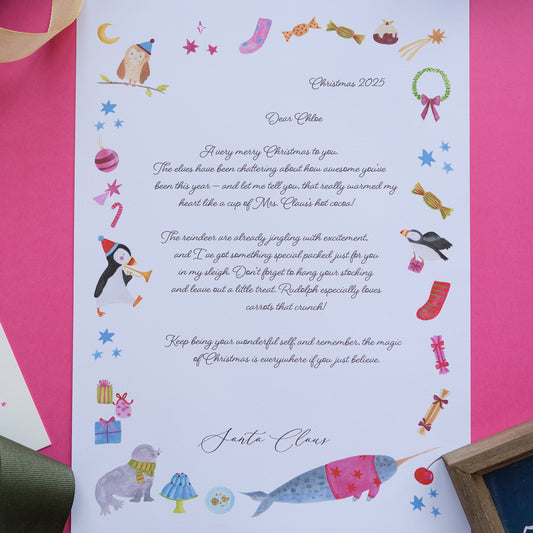 Christmas 2025
Dear Chloe
A very merry Christmas to you.
The elves have been chattering about how awesome you've
been this year – and let me tell you, that really warmed my
heart like a cup of Mrs. Claus's hot cocoa!
The reindeer are already jingling with excitement,
and I've got something special packed just for you
in my sleigh. Don't forget to hang your stocking
and leave out a little treat. Rudolph especially loves
carrots that crunch!
Keep being your wonderful self, and remember, the magic
of Christmas is everywhere if you just believe.
Santa Claus